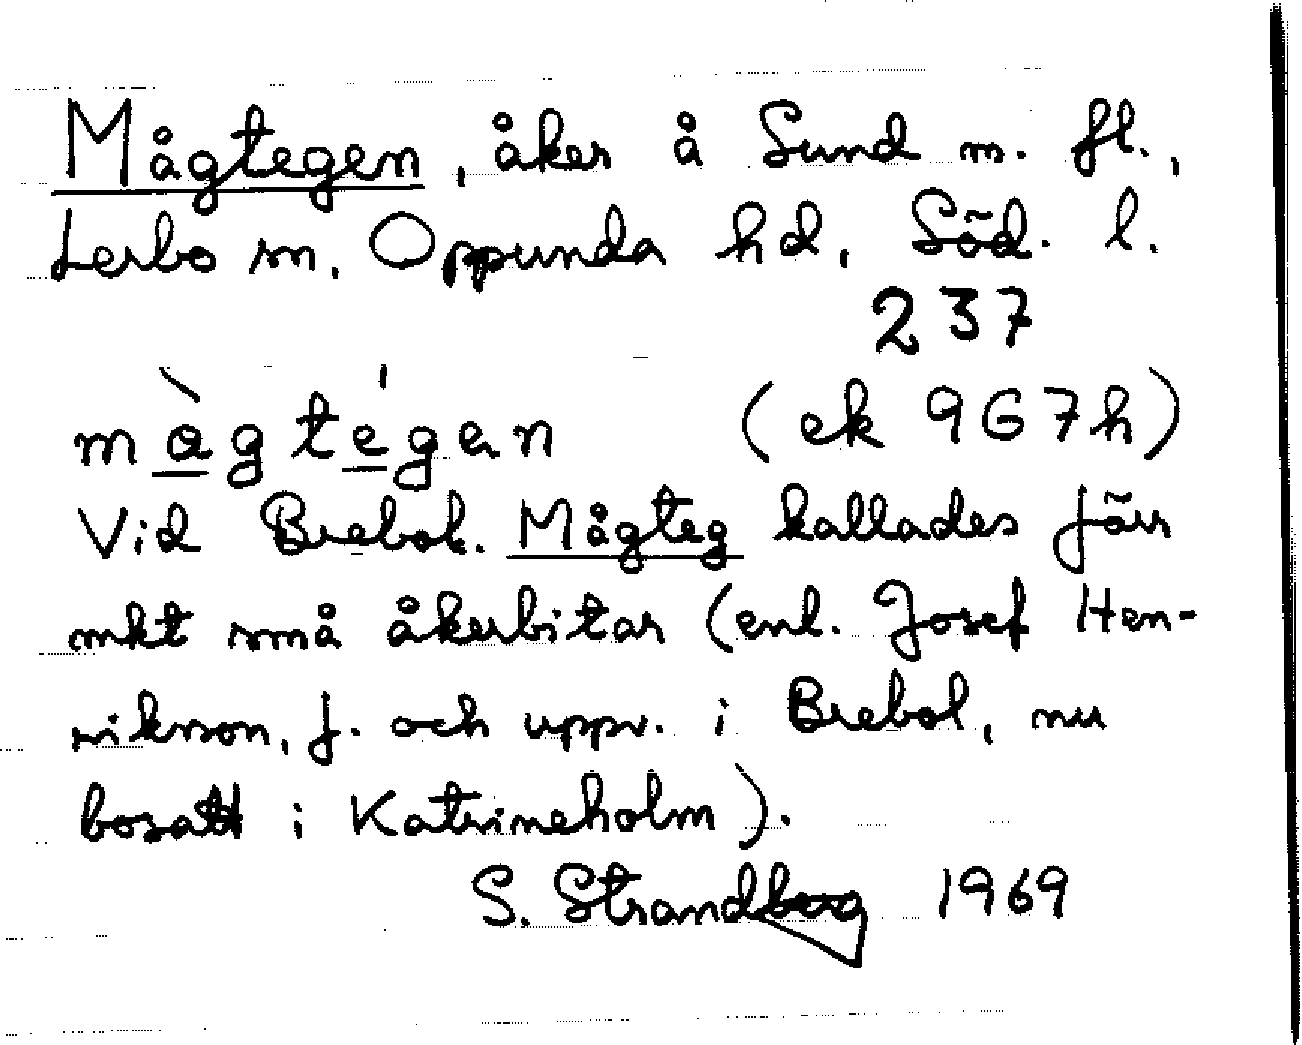 Mågtegen, åker å Sund m. fl.,
Lerbo sn, Oppunda hd, Söd. l.
237
màgtégen (ek 9G7h)
Vid Brebol. Mågteg kallades förr
mkt små åkerbitar (enl. Josef Hen-
rikson, f. och uppv. i Brebol, nu
bosatt i Katrineholm).
S. Strandberg 1969